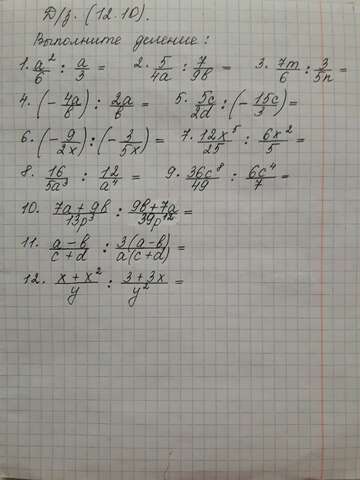 Д/з. (12.10).
Выполните деление:
1. a²/6 : a/3 = 2. 5/4a : 7/9b = 3. 7m/6 : 3/5n =
4. (- 4a/b) : 2a/b = 5. 5c/2d : (- 15c/3) =
6. (- 9/2x) : (- 3/5x) = 7. 12x⁵/25 : 6x²/5 =
8. 16/5a³ : 12/a⁴ = 9. 36c⁸/49 : 6c⁴/7 =
10. 7a+9b/13p³ : 9b+7a/39p¹² =
11. a-b/c+d : 3(a-b)/a(c+d) =
12. x+x²/y : 3+3x/y² =